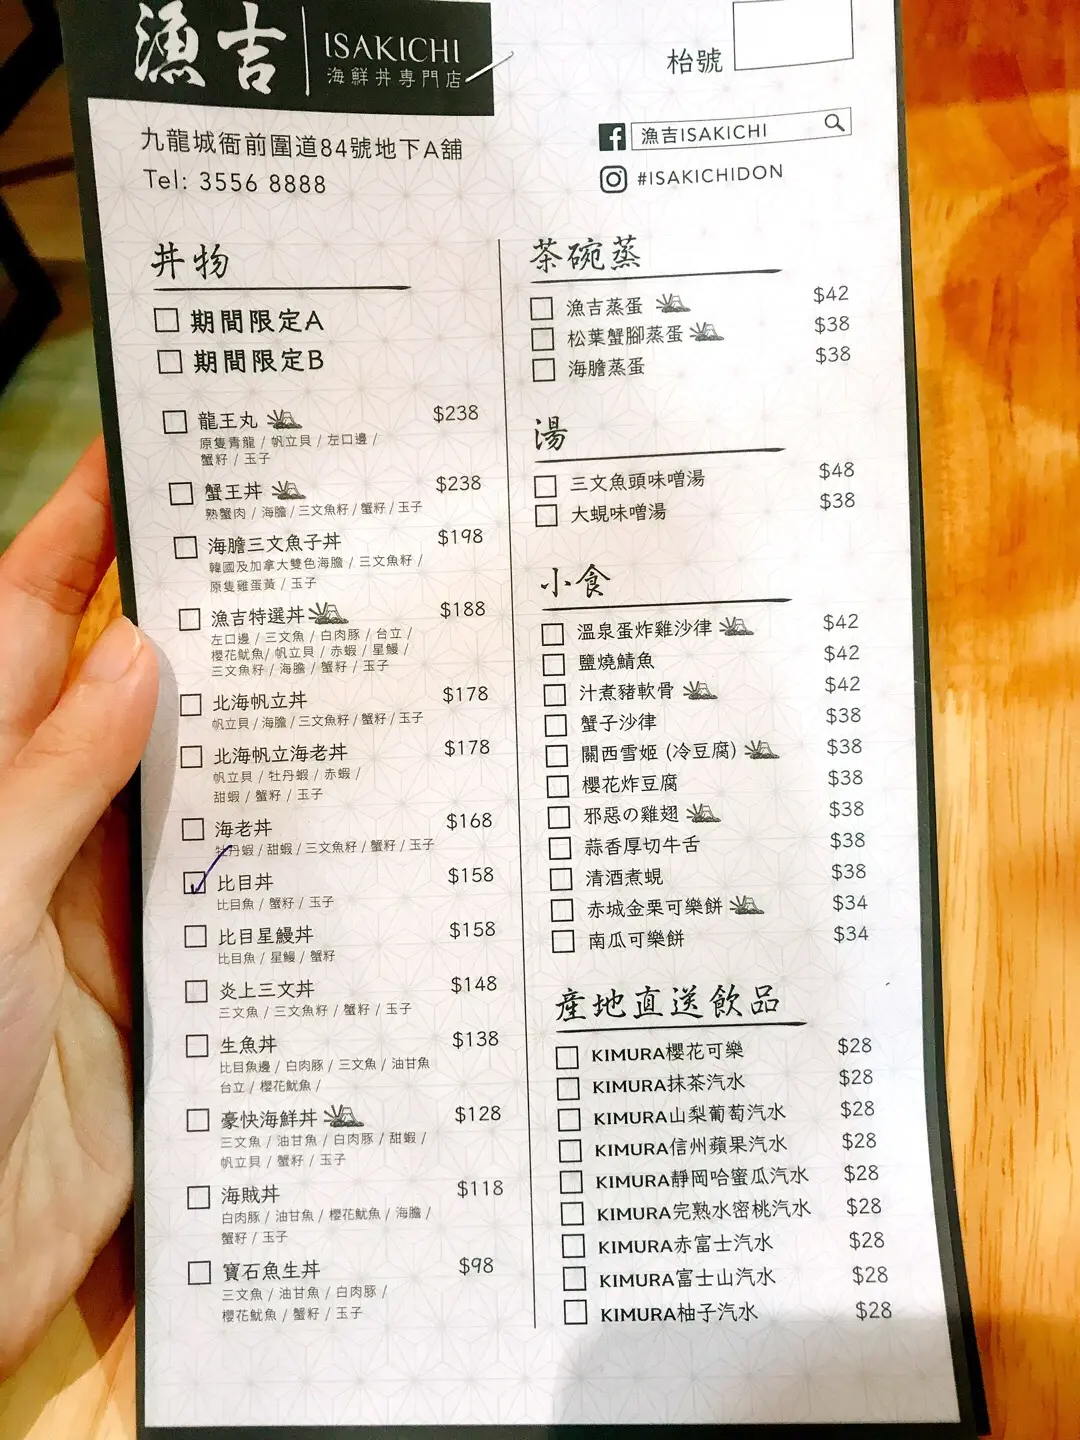 漁吉
ISAKICHI
海鮮丼專門店
枱號
九龍城衙前圍道84號地下A舖
Tel: 3556 8888
漁吉ISAKICHI
#ISAKICHIDON
丼物
期間限定A
期間限定B
龍王丸 $238
原隻青龍 / 帆立貝 / 左口邊 /
蟹籽 / 玉子
蟹王丼 $238
熟蟹肉 / 海膽 / 三文魚籽 / 蟹籽 / 玉子
海膽三文魚子丼 $198
韓國及加拿大雙色海膽 / 三文魚籽 /
原隻雞蛋黃 / 玉子
漁吉特選丼 $188
左口邊 / 三文魚 / 白肉豚 / 台立 /
櫻花魷魚 / 帆立貝 / 赤蝦 / 星鰻 /
三文魚籽 / 海膽 / 蟹籽 / 玉子
北海帆立丼 $178
帆立貝 / 海膽 / 三文魚籽 / 蟹籽 / 玉子
北海帆立海老丼 $178
帆立貝 / 牡丹蝦 / 赤蝦 /
甜蝦 / 蟹籽 / 玉子
海老丼 $168
牡丹蝦 / 甜蝦 / 三文魚籽 / 蟹籽 / 玉子
比目丼 $158
比目魚 / 蟹籽 / 玉子
比目星鰻丼 $158
比目魚 / 星鰻 / 蟹籽
炎上三文丼 $148
三文魚 / 三文魚籽 / 蟹籽 / 玉子
生魚丼 $138
比目魚邊 / 白肉豚 / 三文魚 / 油甘魚
台立 / 櫻花魷魚 /
豪快海鮮丼 $128
三文魚 / 油甘魚 / 白肉豚 / 甜蝦 /
帆立貝 / 蟹籽 / 玉子
海賊丼 $118
白肉豚 / 油甘魚 / 櫻花魷魚 / 海膽 /
蟹籽 / 玉子
寶石魚生丼 $98
三文魚 / 油甘魚 / 白肉豚 /
櫻花魷魚 / 蟹籽 / 玉子
茶碗蒸
漁吉蒸蛋 $42
松葉蟹腳蒸蛋 $38
海膽蒸蛋 $38
湯
三文魚頭味噌湯 $48
大蜆味噌湯 $38
小食
溫泉蛋炸雞沙律 $42
鹽燒鯖魚 $42
汁煮豬軟骨 $42
蟹子沙律 $38
關西雪姬 (冷豆腐) $38
櫻花炸豆腐 $38
邪惡の雞翅 $38
蒜香厚切牛舌 $38
清酒煮蜆 $38
赤城金栗可樂餅 $34
南瓜可樂餅 $34
産地直送飲品
KIMURA櫻花可樂 $28
KIMURA抹茶汽水 $28
KIMURA山梨葡萄汽水 $28
KIMURA信州蘋果汽水 $28
KIMURA靜岡哈蜜瓜汽水 $28
KIMURA完熟水密桃汽水 $28
KIMURA赤富士汽水 $28
KIMURA富士山汽水 $28
KIMURA柚子汽水 $28